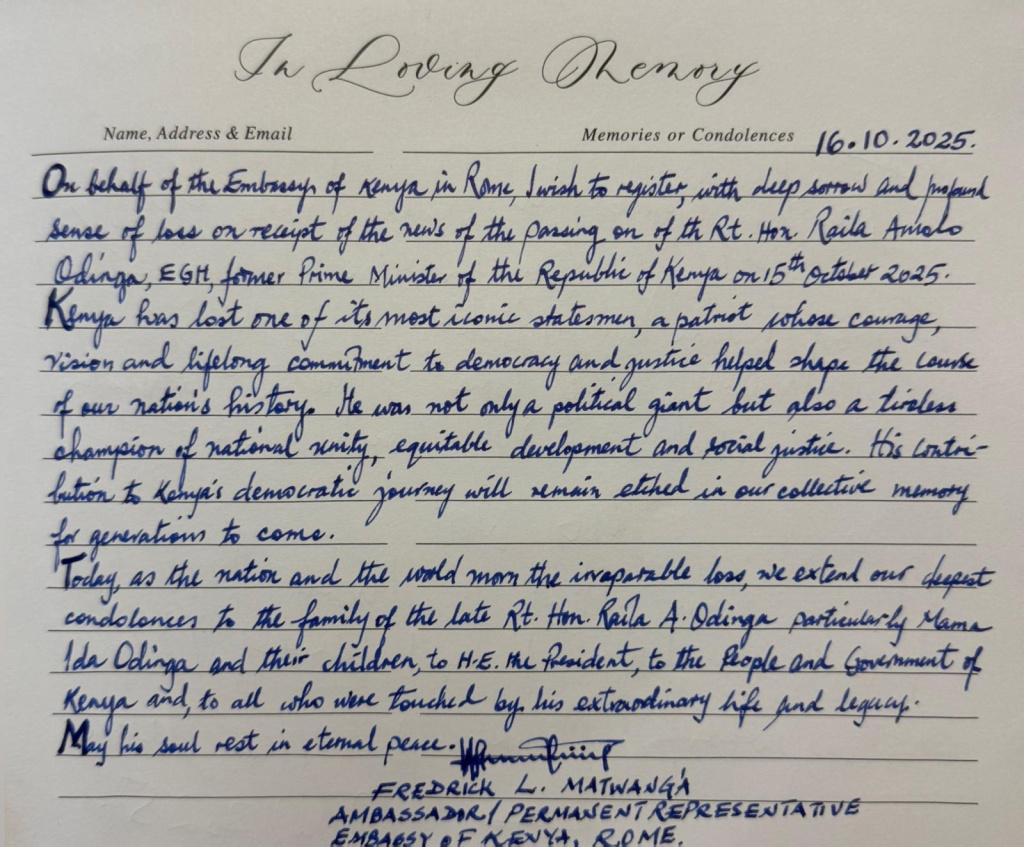 In Loving Memory
Name, Address & Email Memories or Condolences 16.10.2025.
On behalf of the Embassy of Kenya in Rome, I wish to register, with deep sorrow and profound
sense of loss on receipt of the news of the passing on of th Rt. Hon. Raila Amolo
Odinga, EGH, former Prime Minister of the Republic of Kenya on 15th October 2025.
Kenya has lost one of its most iconic statesmen, a patriot whose courage,
vision and lifelong commitment to democracy and justice helped shape the course
of our nation's history. He was not only a political giant but also a tireless
champion of national unity, equitable development and social justice. His contri-
bution to Kenya's democratic journey will remain etched in our collective memory
for generations to come.
Today, as the nation and the world morn the irreparable loss, we extend our deepest
condolences to the family of the late Rt. Hon. Raila A. Odinga particularly Mama
Ida Odinga and their children, to H.E. the President, to the People and Government of
Kenya and, to all who were touched by his extraordinary life and legacy.
May his soul rest in eternal peace.
FREDRICK L. MATWANG'A
AMBASSADOR/PERMANENT REPRESENTATIVE
EMBASSY OF KENYA, ROME.